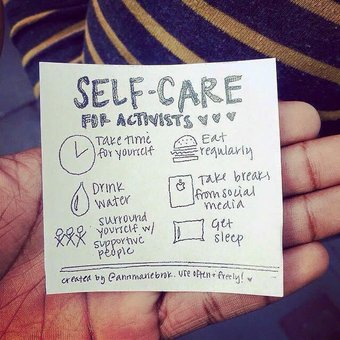 SELF-CARE
FOR ACTIVISTS
Take time
for yourself
Eat
regularly
Drink
water
Take breaks
from social
media
surround
yourself w/
supportive
people
Get
sleep
created by @annmariebrok. use often + freely!